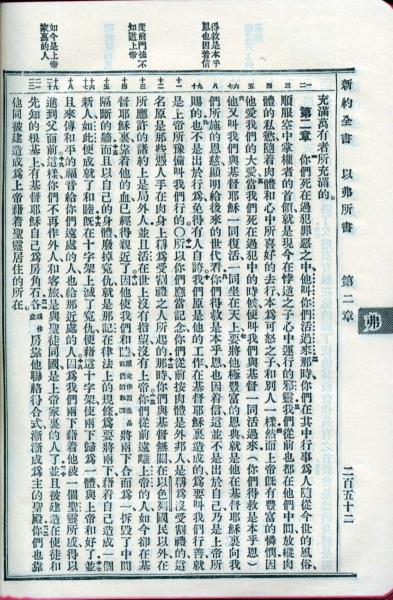 新約全書 以弗所書 第二章 二百五十二
弗
得救是本乎
恩也因着信
不知道上帝
如今是上帝
家裏的人
充滿萬有者所充滿的。
第二章 你們死在過犯罪惡之中、他叫你們活過來、那時你們在其中行事爲人隨從今世的風俗、
順服空中掌權者的首領、就是現今在悖逆之子心中運行的邪靈、我們從前也都在他們中間、放縱肉
體的私慾、隨着肉體和心中所喜好的去行、本爲可怒之子、和別人一樣、然而上帝旣有豐富的憐憫、因
他愛我們的大愛、當我們死在過犯中的時候、便叫我們與基督一同活過來、（你們得救是本乎恩）
他又叫我們與基督耶穌一同復活、一同坐在天上、要將他極豐富的恩典、就是他在基督耶穌裏向我
們所施的恩慈、顯明給後來的世代看、你們得救是本乎恩、也因着信、這並不是出於自己、乃是上帝所
賜的、也不是出於行爲、免得有人自誇、我們原是他的工作、在基督耶穌裏造成的、爲要叫我們行善、就
是上帝所豫備叫我們行的。〇所以你們應當記念、你們從前按肉體是外邦人、是稱爲沒受割禮的、這
名原是那些憑人手在肉身上稱爲受割禮之人所起的、那時你們與基督無關、在以色列國民以外、在
所應許的諸約上是局外人、並且活在世上沒有指望、沒有上帝、你們從前遠離上帝的人、如今卻在基
督耶穌裏、靠着他的血、已經得親近了、因他使我們和睦、原文作因他是我們的和睦將兩下合而爲一、拆毀了中間
隔斷的牆、而且以自己的身體、廢掉冤仇、就是那記在律法上的規條、爲要將兩下、藉着自己造成一個
新人、如此便成就了和睦、旣在十字架上滅了冤仇、便藉這十字架、使兩下歸爲一體、與上帝和好了、並
且來傳和平的福音給你們遠處的人、也給那近處的人、因爲我們兩下藉着他被一個聖靈所感、得以
進到父面前、這樣、你們不再作外人、和客旅、是與聖徒同國、是上帝家裏的人了、並且被建造在使徒和
先知的根基上、有基督耶穌自己爲房角石、各房靠他聯絡得合式、漸漸成爲主的聖殿、你們也靠
他同被建造成爲上帝藉着聖靈居住的所在。